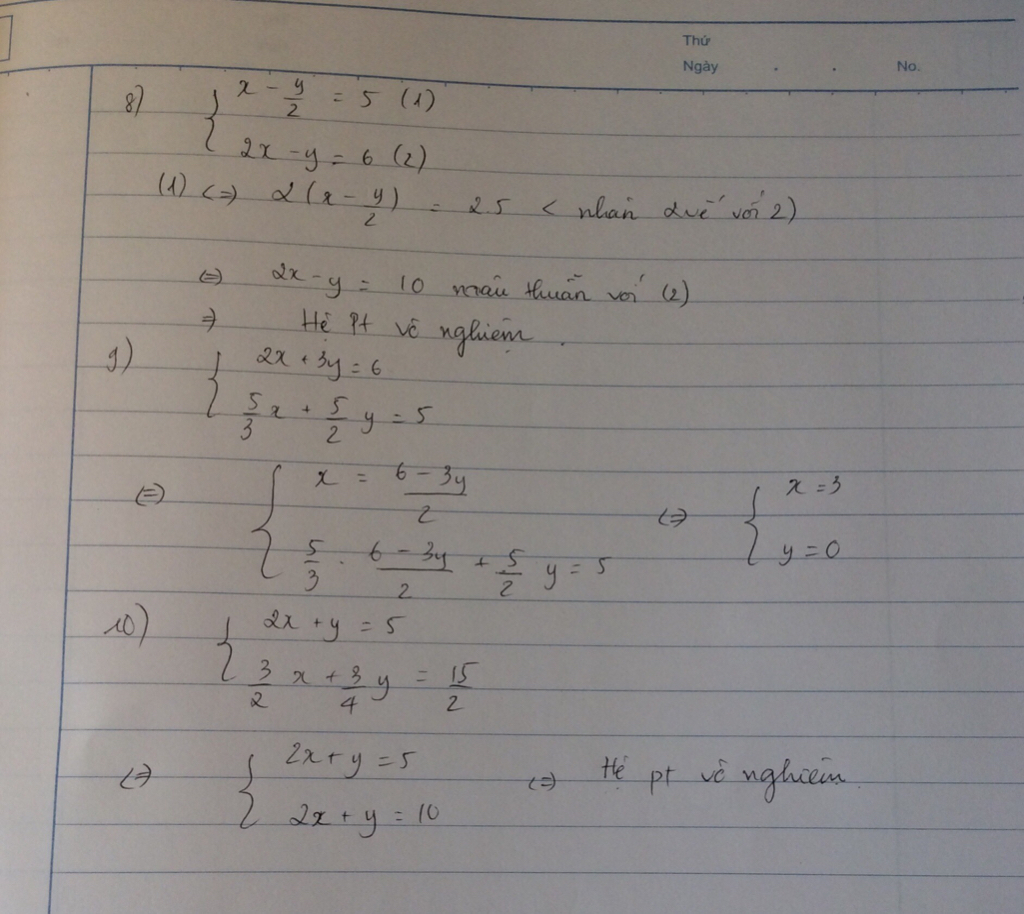 Thứ
Ngày . . No.
8) { x - y/2 = 5 (1)
2x - y = 6 (2)
(1) <=> 2(x - y/2) = 2.5 < nhân 2 vế với 2)
<=> 2x - y = 10 mâu thuẫn với (2)
=> Hệ Pt vô nghiệm.
9) { 2x + 3y = 6
5/3 x + 5/2 y = 5
<=> { x = (6 - 3y)/2 <=> { x = 3
5/3 . (6 - 3y)/2 + 5/2 y = 5 y = 0
10) { 2x + y = 5
3/2 x + 3/4 y = 15/2
<=> { 2x + y = 5 <=> Hệ pt vô nghiệm.
2x + y = 10